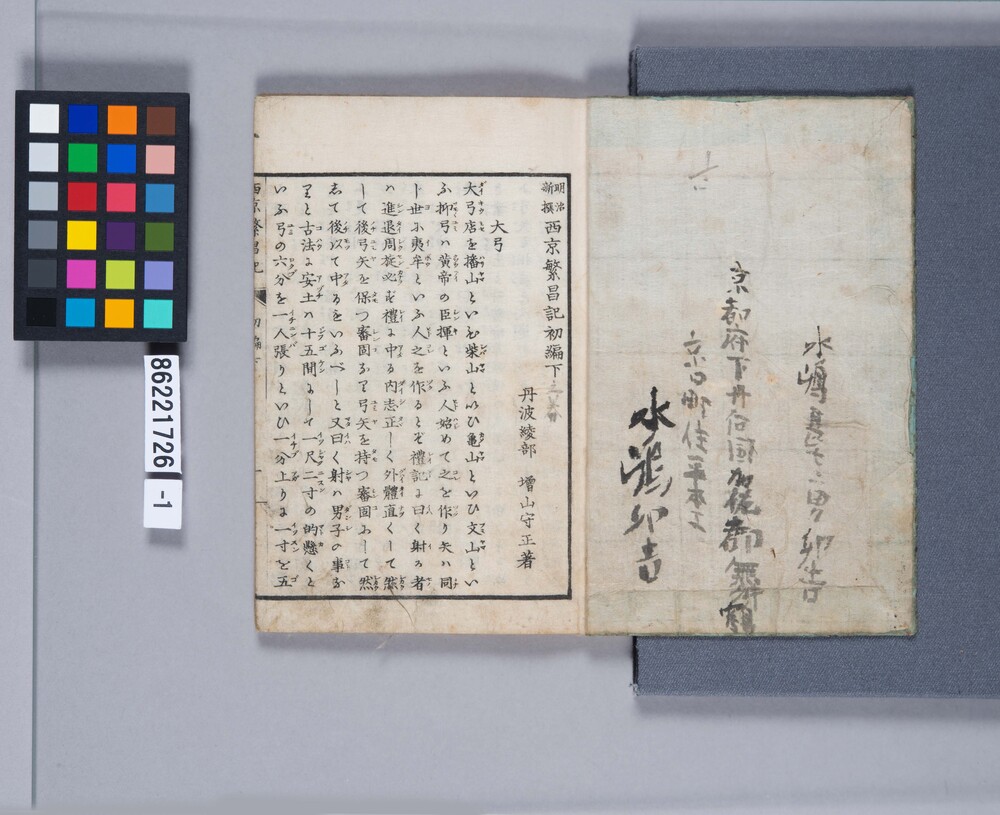 水嶋
京都府下丹后國加佐郡舞鶴
京口町住平本
水嶋卯吉
明治新撰西京繁昌記初編下
丹波綾部　増山守正著
大弓
大弓店を播山といひ柴山といひ亀山といひ文山とい
ふ抑弓ハ黄帝の臣揮といふ人始めて之を作り矢ハ同
ト世に夷牟といふ人之を作るとぞ禮記に曰く射る者
ハ進退周旋必ず禮に中る内志正しく外體直くして然
して後弓矢を保つ審固なり弓矢を持つ審固にして然
して後以て中るをいふべしと又曰く射ハ男子の事な
りと古法に安土ハ十五間にして一尺二寸の的懸くと
いふ弓の六分を一人張りといひ一分上りに一寸を五
西京繁昌記　初編下
86221726
-1